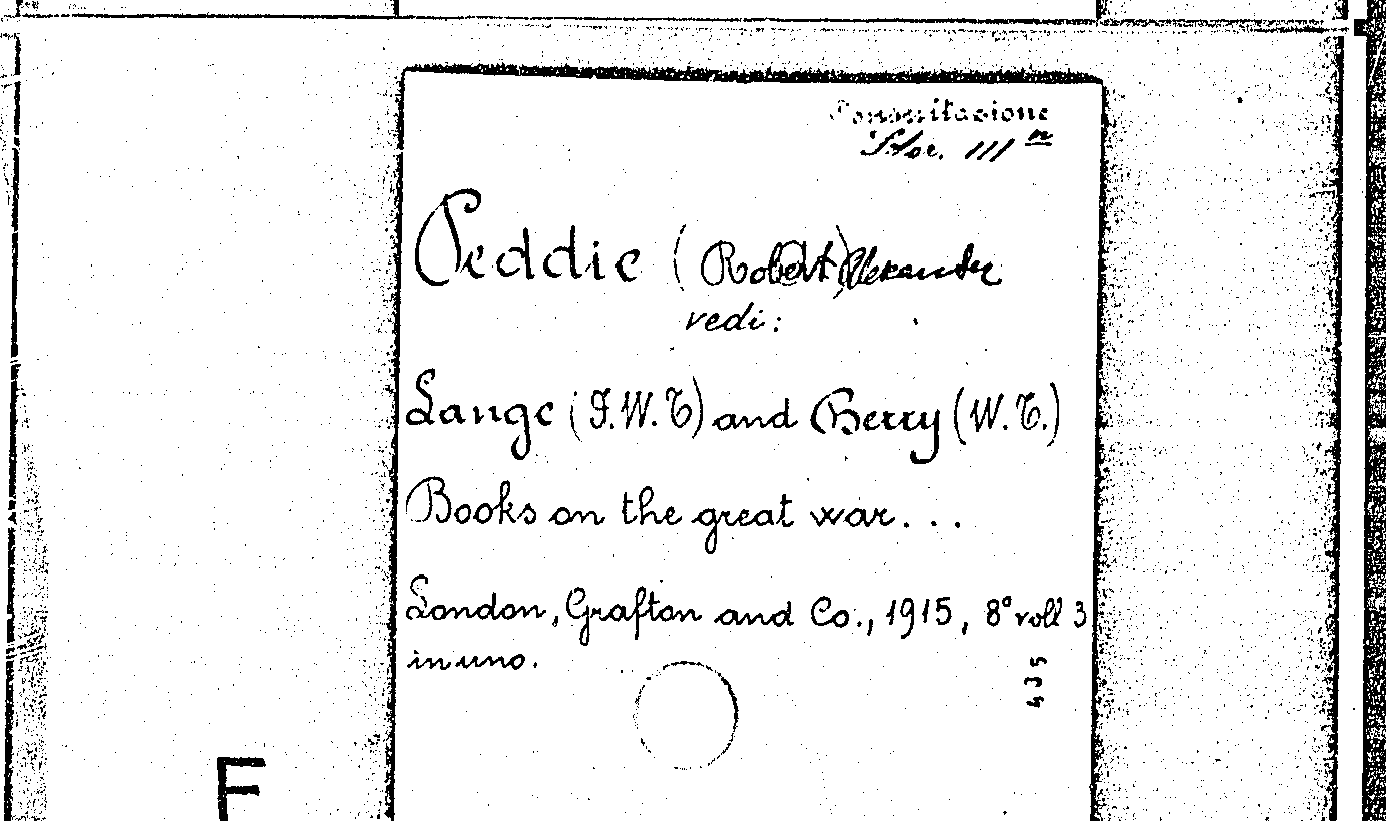 Consultazione
Stor. III n
Peddie (Robert) Alexander
vedi:
Lange (F.W.T) and Berry (W.T.)
Books on the great war...
London, Grafton and Co., 1915, 8° voll 3
in uno.
435
F